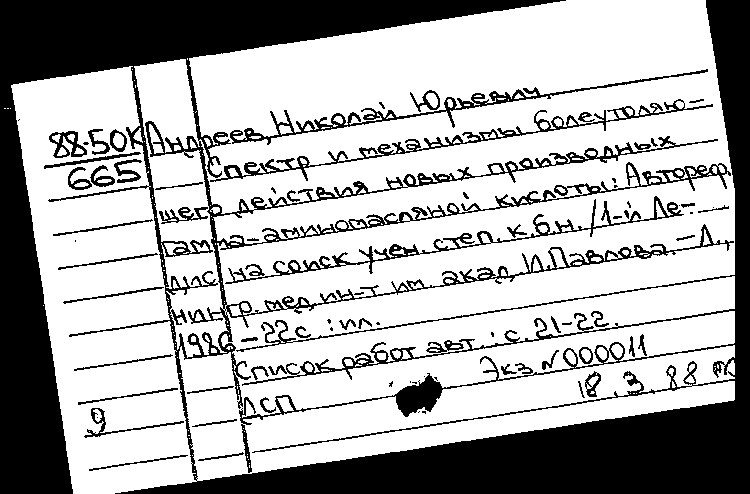 88-50К Андреев, Николай Юрьевич.
665 Спектр и механизмы болеутоляю-
щего действия новых производных
гамма-аминомасляной кислоты: Автореф.
дис на соиск учен. степ. к.б.н. /1-й Ле-
нингр. мед. ин-т им. акад. И.Павлова. -Л.,
1986 - 22с. : ил.
Список работ авт. : с. 21-22.
ДСП. Экз. N 000011
9 18. 3. 88